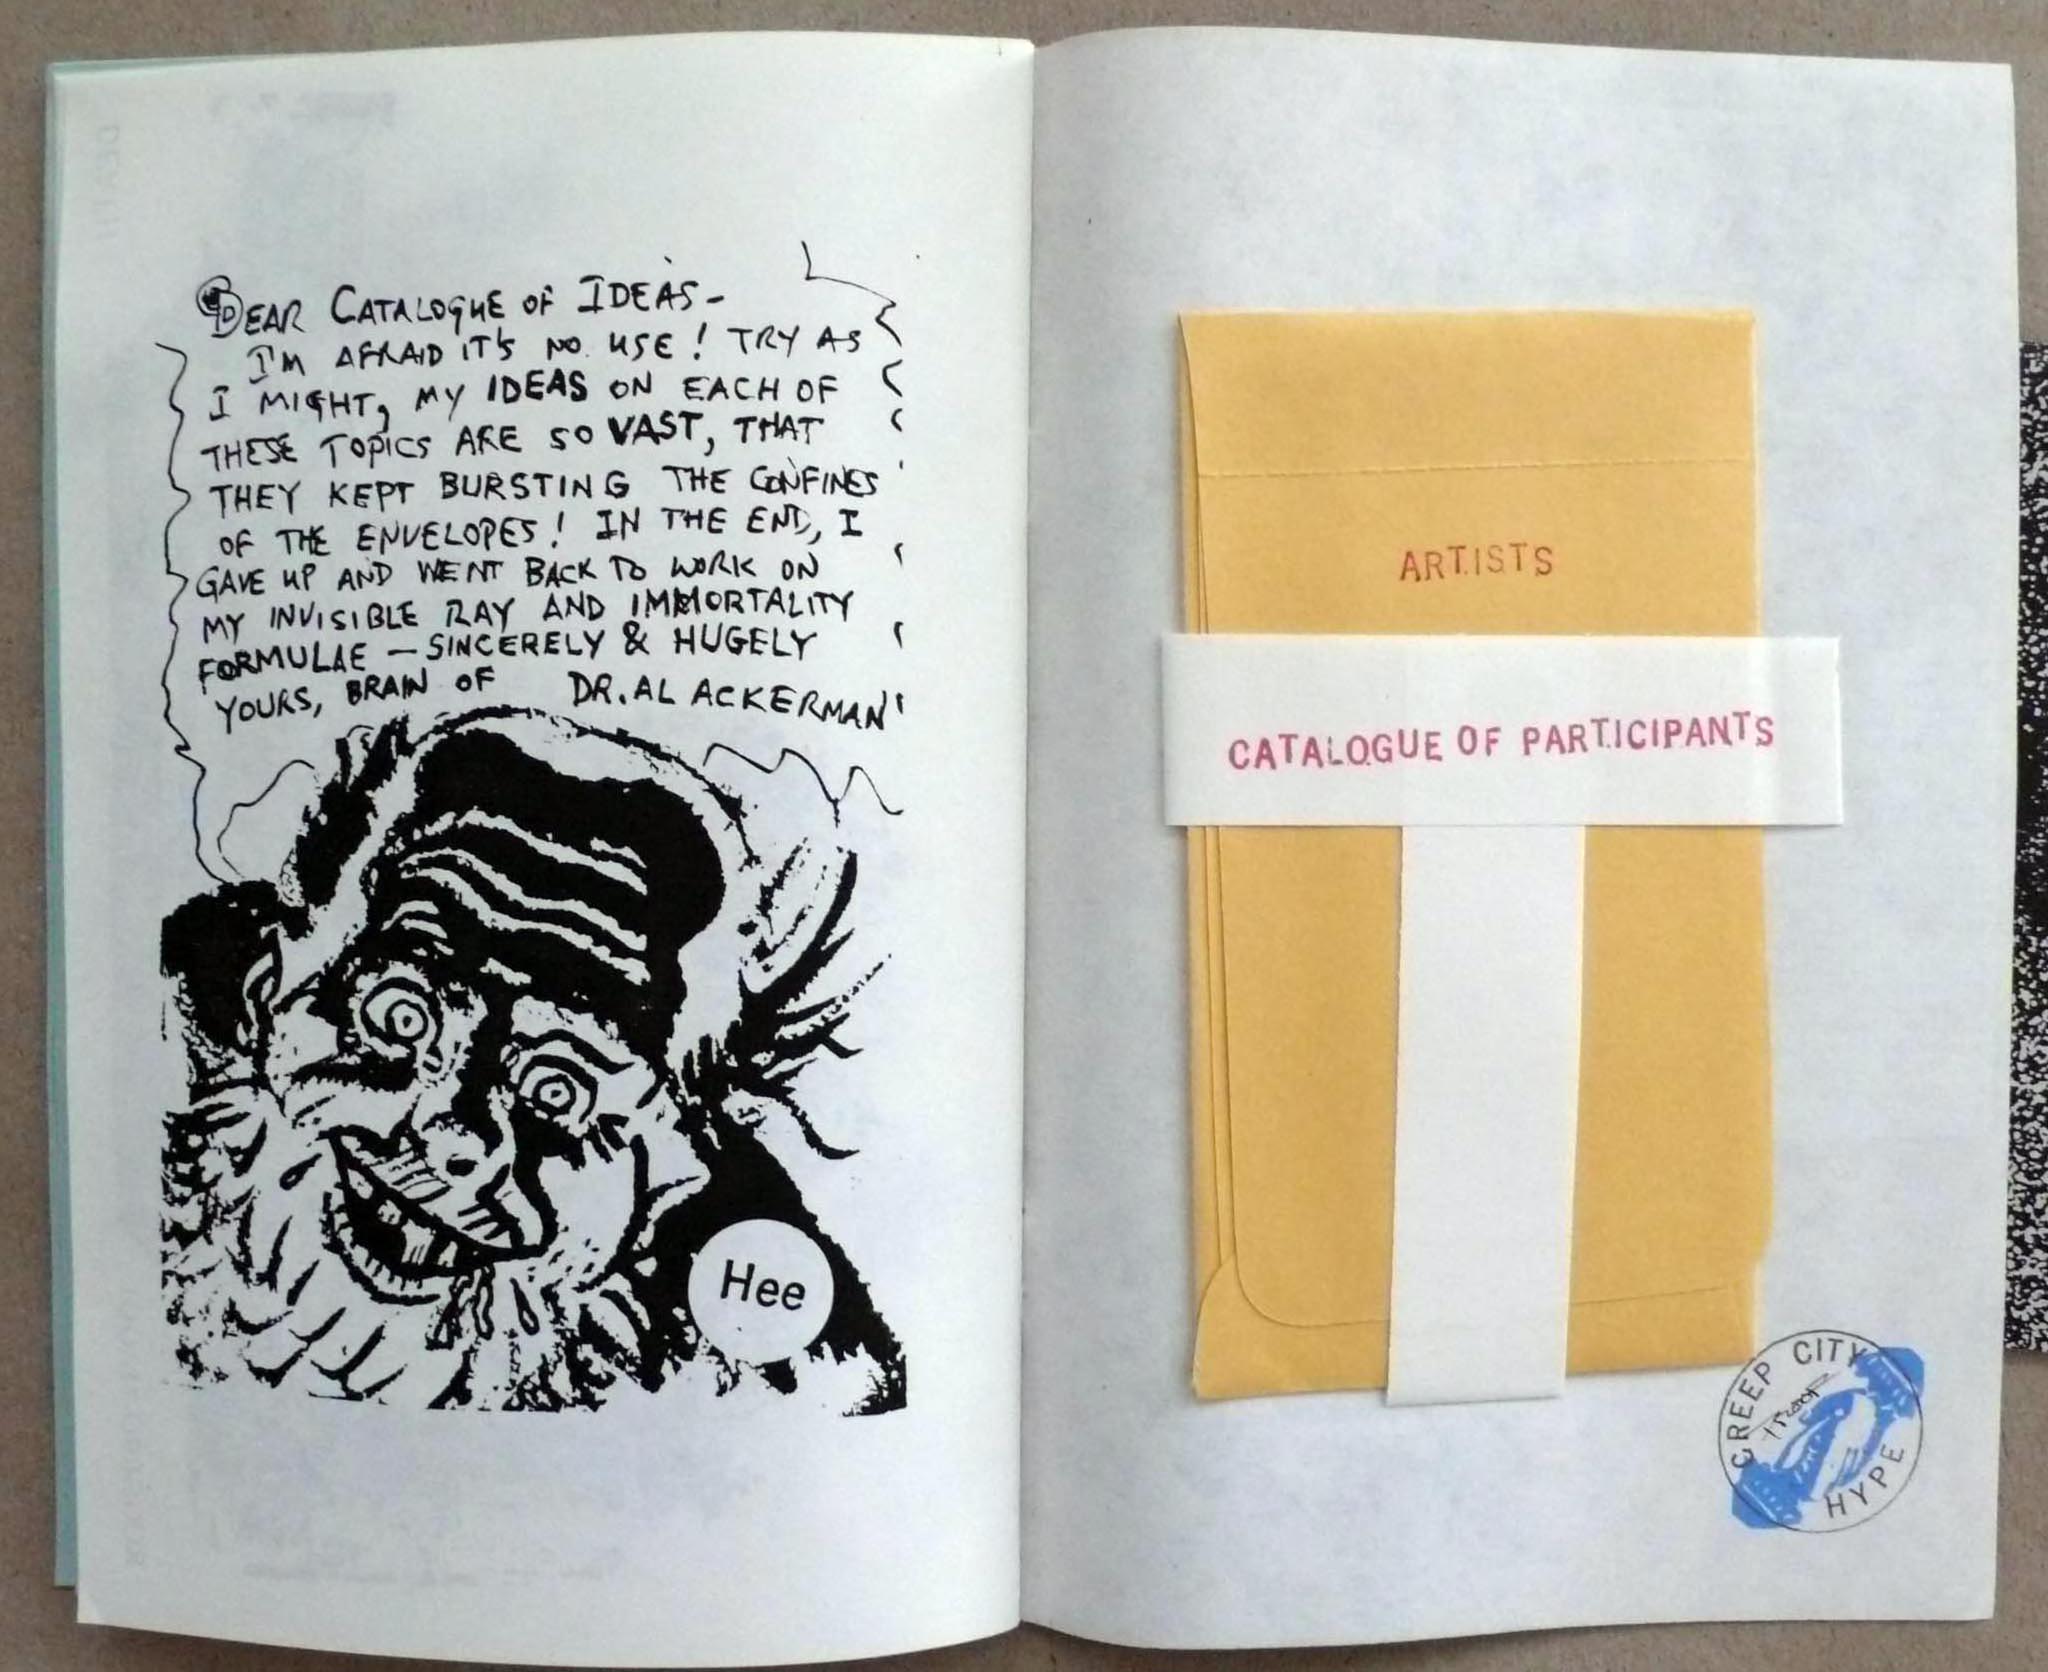 DEAR CATALOGUE OF IDEAS-
I'M AFRAID IT'S NO USE! TRY AS
I MIGHT, MY IDEAS ON EACH OF
THESE TOPICS ARE SO VAST, THAT
THEY KEPT BURSTING THE CONFINES
OF THE ENVELOPES! IN THE END, I
GAVE UP AND WENT BACK TO WORK ON
MY INVISIBLE RAY AND IMMORTALITY
FORMULAE — SINCERELY & HUGELY
YOURS, BRAIN OF DR. AL ACKERMAN
Hee
ARTISTS
CATALOGUE OF PARTICIPANTS
CREEP CITY
HYPE